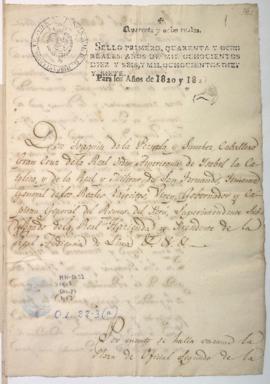 Quarenta y ocho reales.
SELLO PRIMERO, QUARENTA Y OCHO
REALES, AÑOS DE MIL OCHOCIENTOS
DIEZ Y SEIS, Y MIL OCHOCIENTOS DIEZ
Y SIETE.
Para los Años de 1820 y 182
Don Joaquin de la Pezuela y Sanchez Caballero
Gran Cruz de la Real Orden Americana de Isabel la Ca
tolica, y de la Real y Militar de San Fernando, Teniente
General de los Reales Exercitos, Virrey, Gobernador y Ca
pitan General del Reyno del Perú, Superintendente Sub
delegado de la Real Hacienda y Presidente de la
Real Audiencia de Lima &.&.
Por cuanto se halla vacante la
Plaza de Oficial Segundo de la